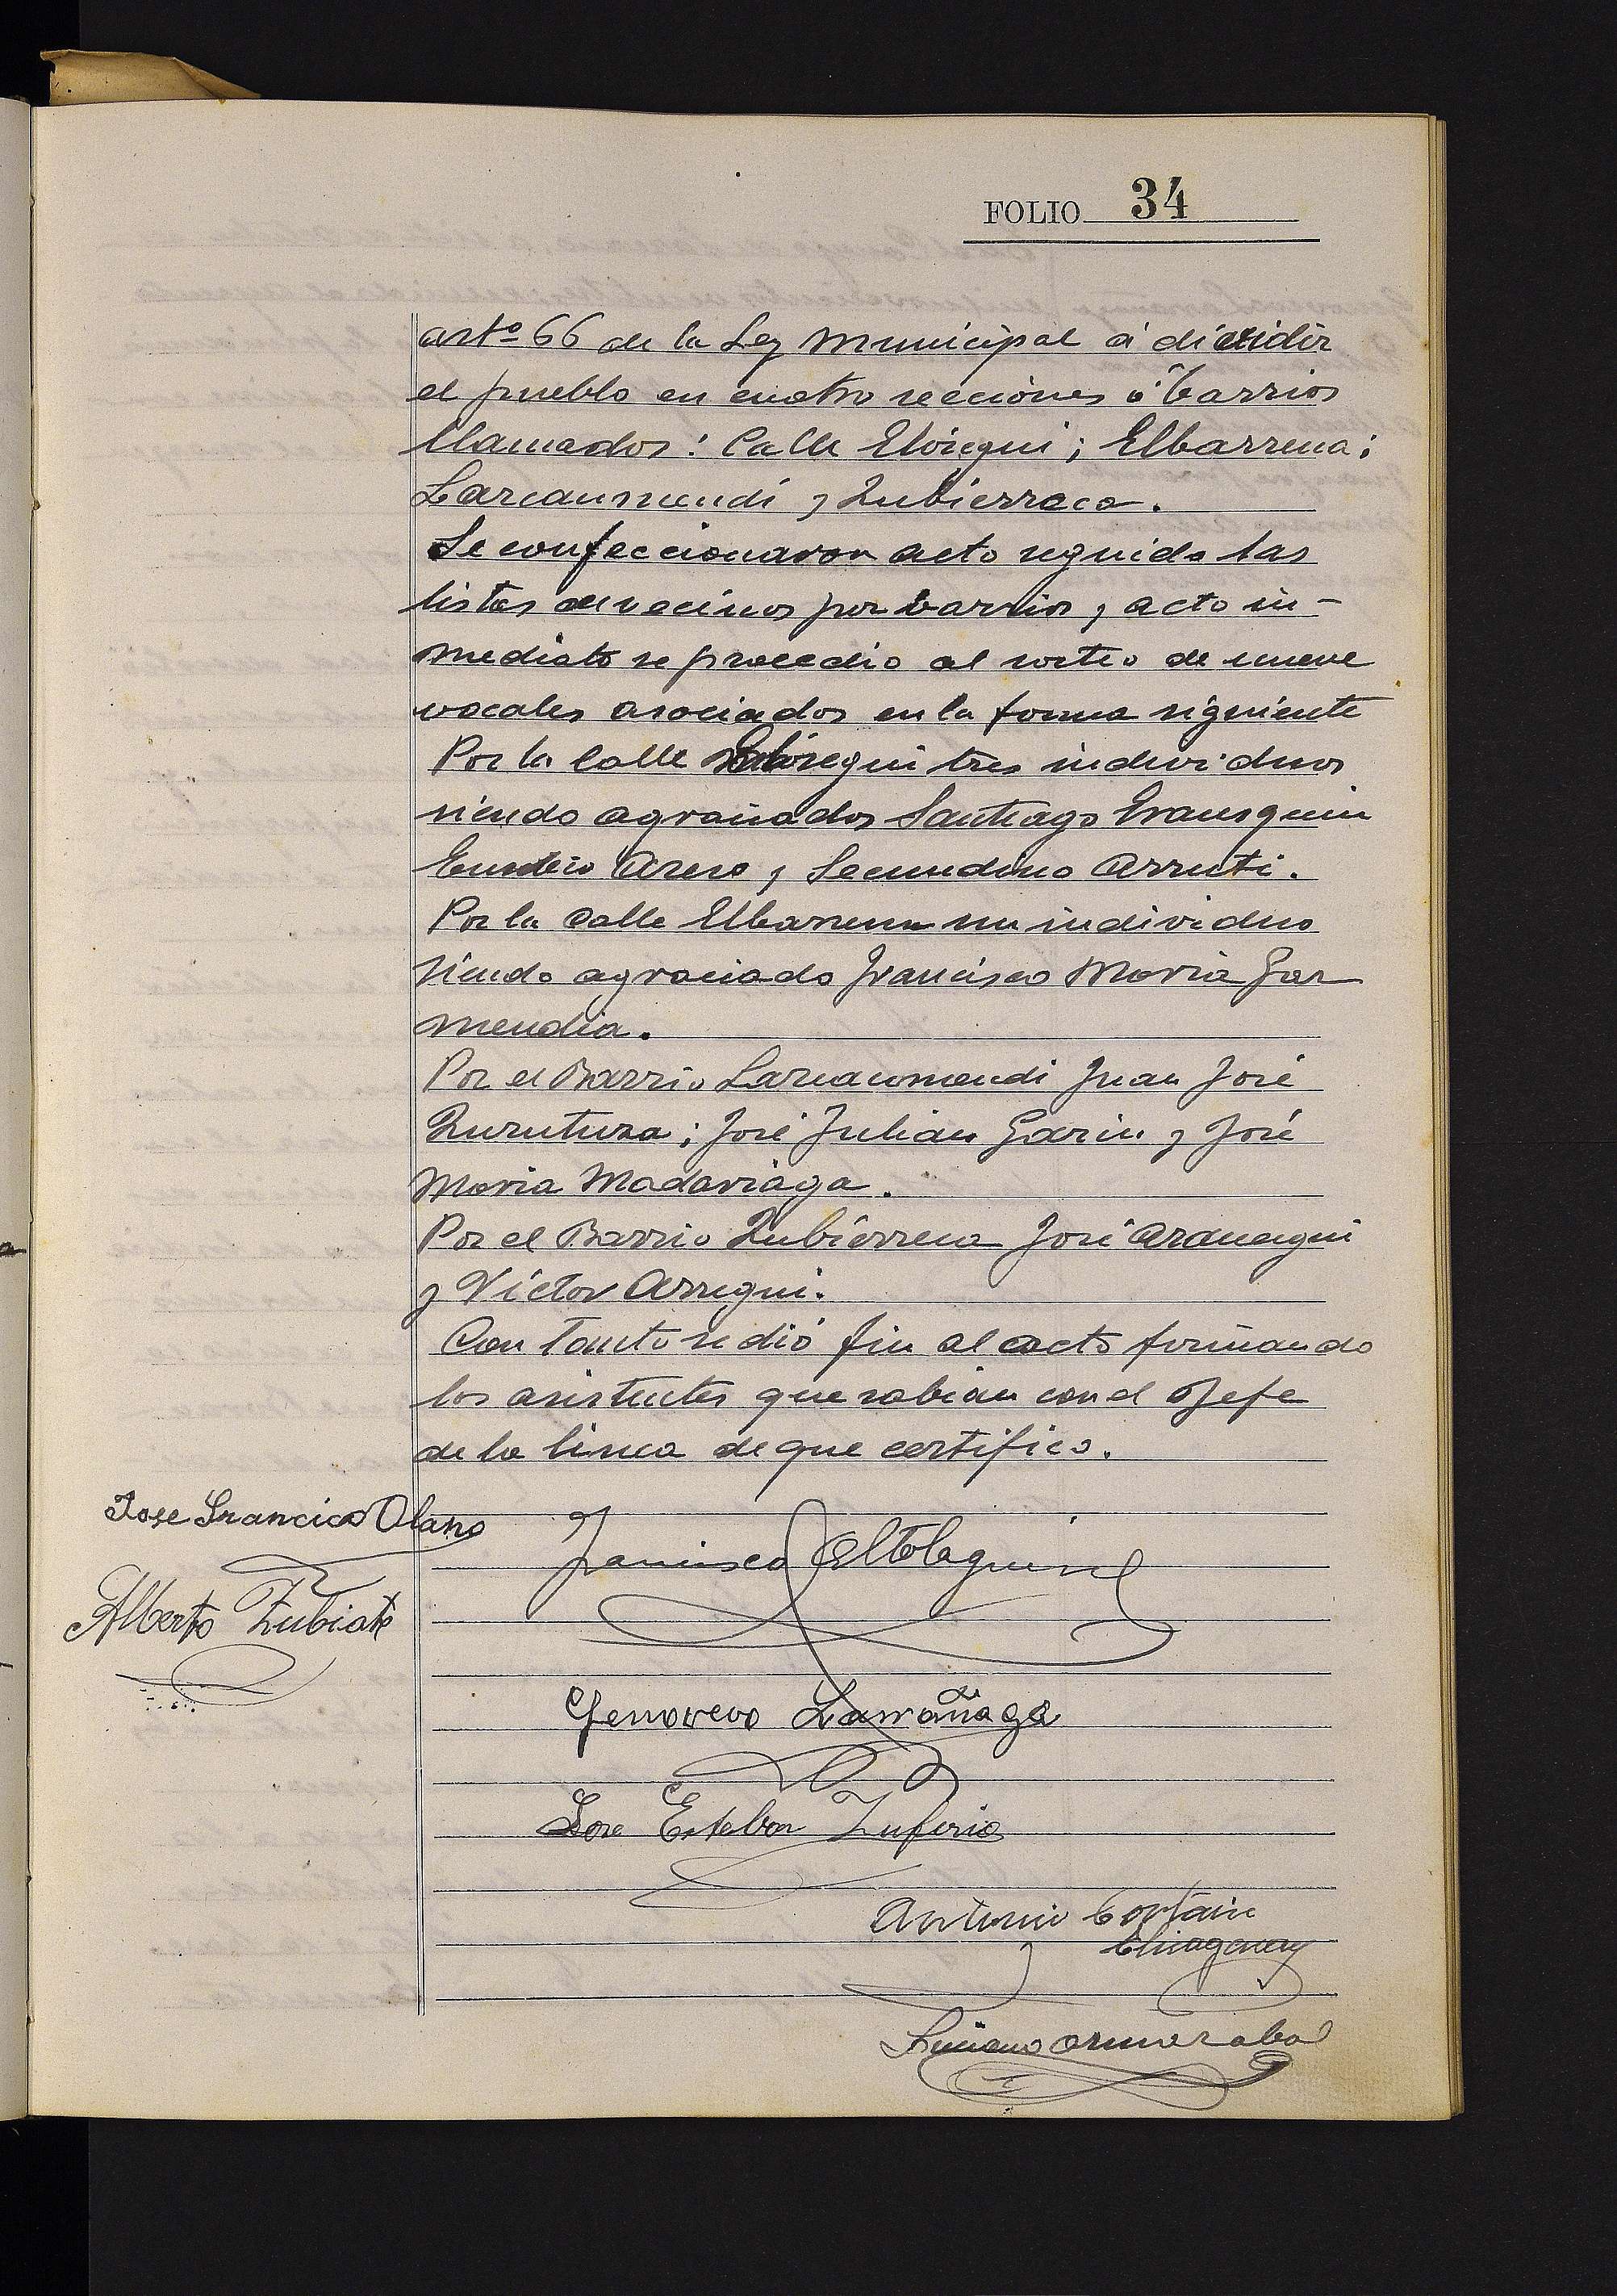 FOLIO 34
artº 66 de la Ley Municipal á dividir
el pueblo en cuatro secciones ó barrios
llamados: Calle Elósegui; Elbarrena;
Larcaumendi y Zubierreca.
Se confeccionaron acto seguido las
listas de vecinos por barrios y acto in-
mediato se procedio al sorteo de nueve
vocales asociados en la forma siguiente
Por la Calle Elósegui tres individuos
siendo agraciados Santiago Irausquin
Eusebio Areso y Secundino Arruti.
Por la Calle Elbarrena un individuo
siendo agraciado Francisco Maria Gar
mendia.
Por el Barrio Larcaumendi Juan José
Zurutuza; José Julian Garin y José
Maria Madariaga.
Por el Barrio Zubierreca José Aranegui
y Victor Arregui.
Con tanto se dió fin al acto firmando
los asistentes que sabian con el Jefe
de la linea de que certifico.
Jose Francico Olano
Francisco Altolaguirre
Alberto Zubiate
Genoveva Larrañaga
Jose Esteban Zuferia
Antonio
Luciano Ormazabal